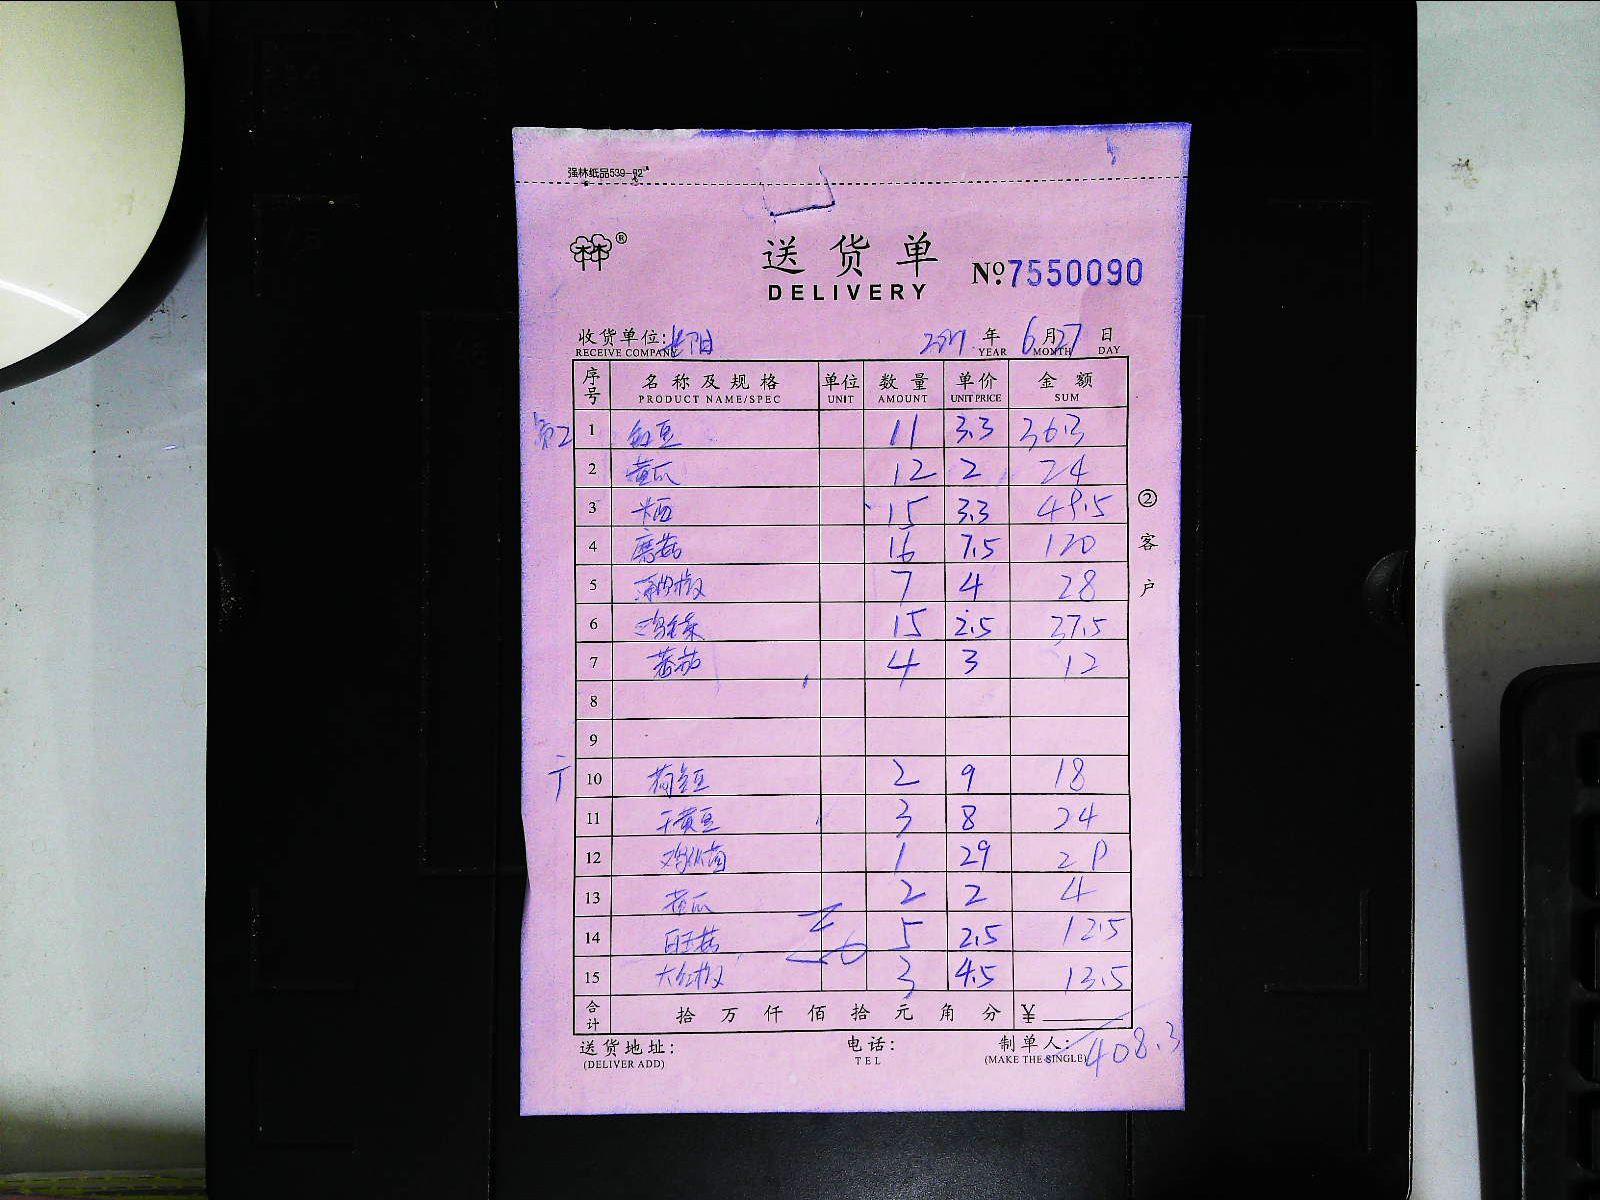 强林纸品539-82
林林®
送货单
DELIVERY
№.7550090
收货单位: 阳 年 6月27日
RECEIVE COMPANY YEAR MONTH DAY
序号 名称及规格 单位 数量 单价 金额
PRODUCT NAME/SPEC UNIT AMOUNT UNIT PRICE SUM
1 11 3.3 36.3
2 黄瓜 12 2 24
3 15 3.3 49.5
4 磨菇 16 7.5 120
5 7 4 28
6 15 2.5 37.5
7 蕃茄 4 3 12
8
9
10 荷兰豆 2 9 18
11 干黄豆 3 8 24
12 鸡枞菌 1 29 29
13 黄瓜 2 2 4
14 白玉菇 5 2.5 12.5
15 大红椒 3 4.5 13.5
合计 拾万仟佰拾元角分 ¥
408.3
送货地址: 电话: 制单人:
(DELIVER ADD) TEL (MAKE THE SINGLE)
②客户